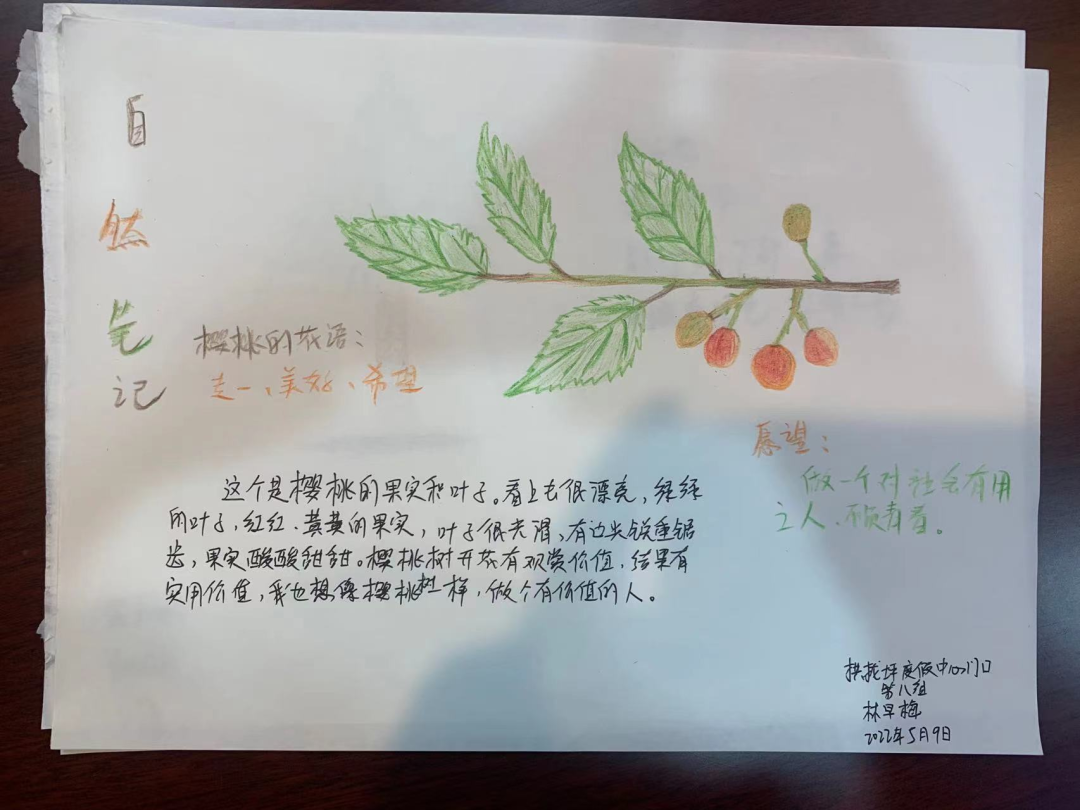 自然笔记
樱桃的花语：
走一、美好、希望
这个是樱桃的果实和叶子。看上去很漂亮，经经
的叶子，红红、黄黄的果实，叶子很光滑，有边尖锐重锯
齿，果实酸酸甜甜。樱桃树开花有观赏价值，结果有
实用价值，我也想像樱桃树一样，做个有价值的人。
愿望：
做一个对社会有用
之人、不负青春。
拱拢坪度假中心门口
第八组
林早梅
2022年5月9日